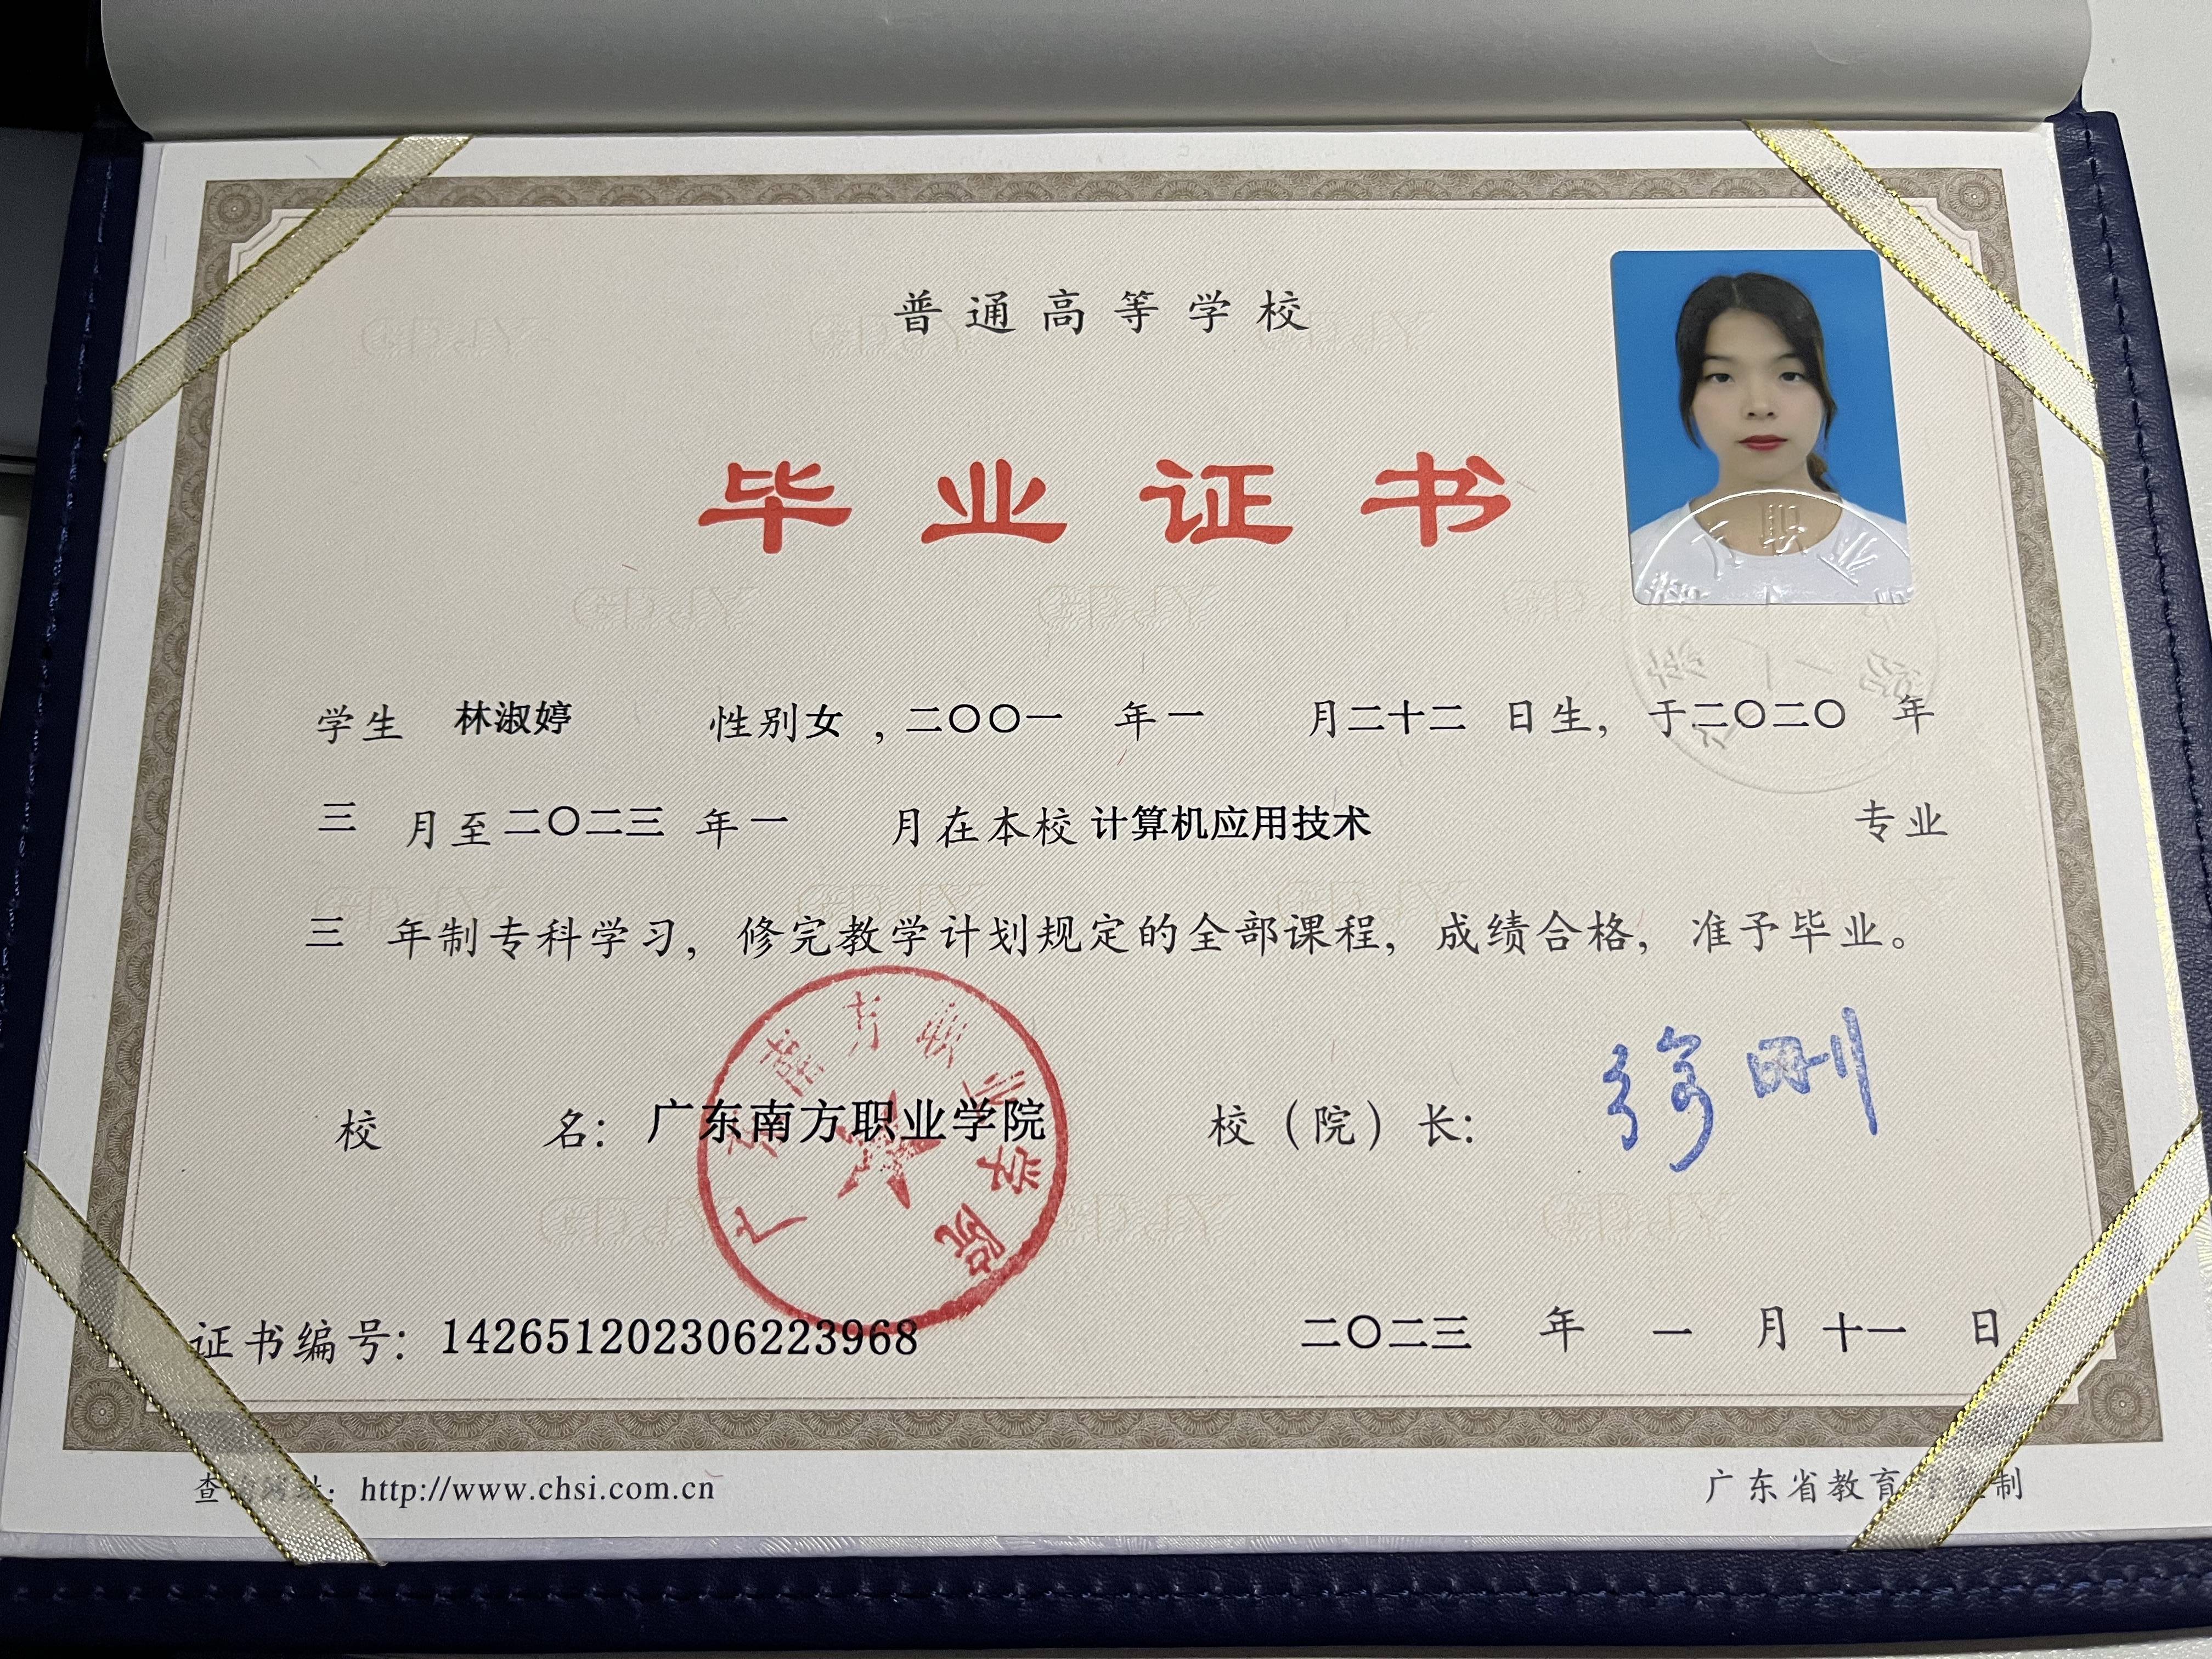 普通高等学校
毕业证书
学生 林淑婷 性别女，二〇〇一 年一 月二十二 日生，于二〇二〇 年
三 月至二〇二三 年一 月在本校计算机应用技术 专业
三 年制专科学习，修完教学计划规定的全部课程，成绩合格，准予毕业。
校 名：广东南方职业学院 校（院）长：徐刚
广东南方职业学院
证书编号：142651202306223968 二〇二三 年 一 月 十一 日
查 网址：http://www.chsi.com.cn 广东省教育 制